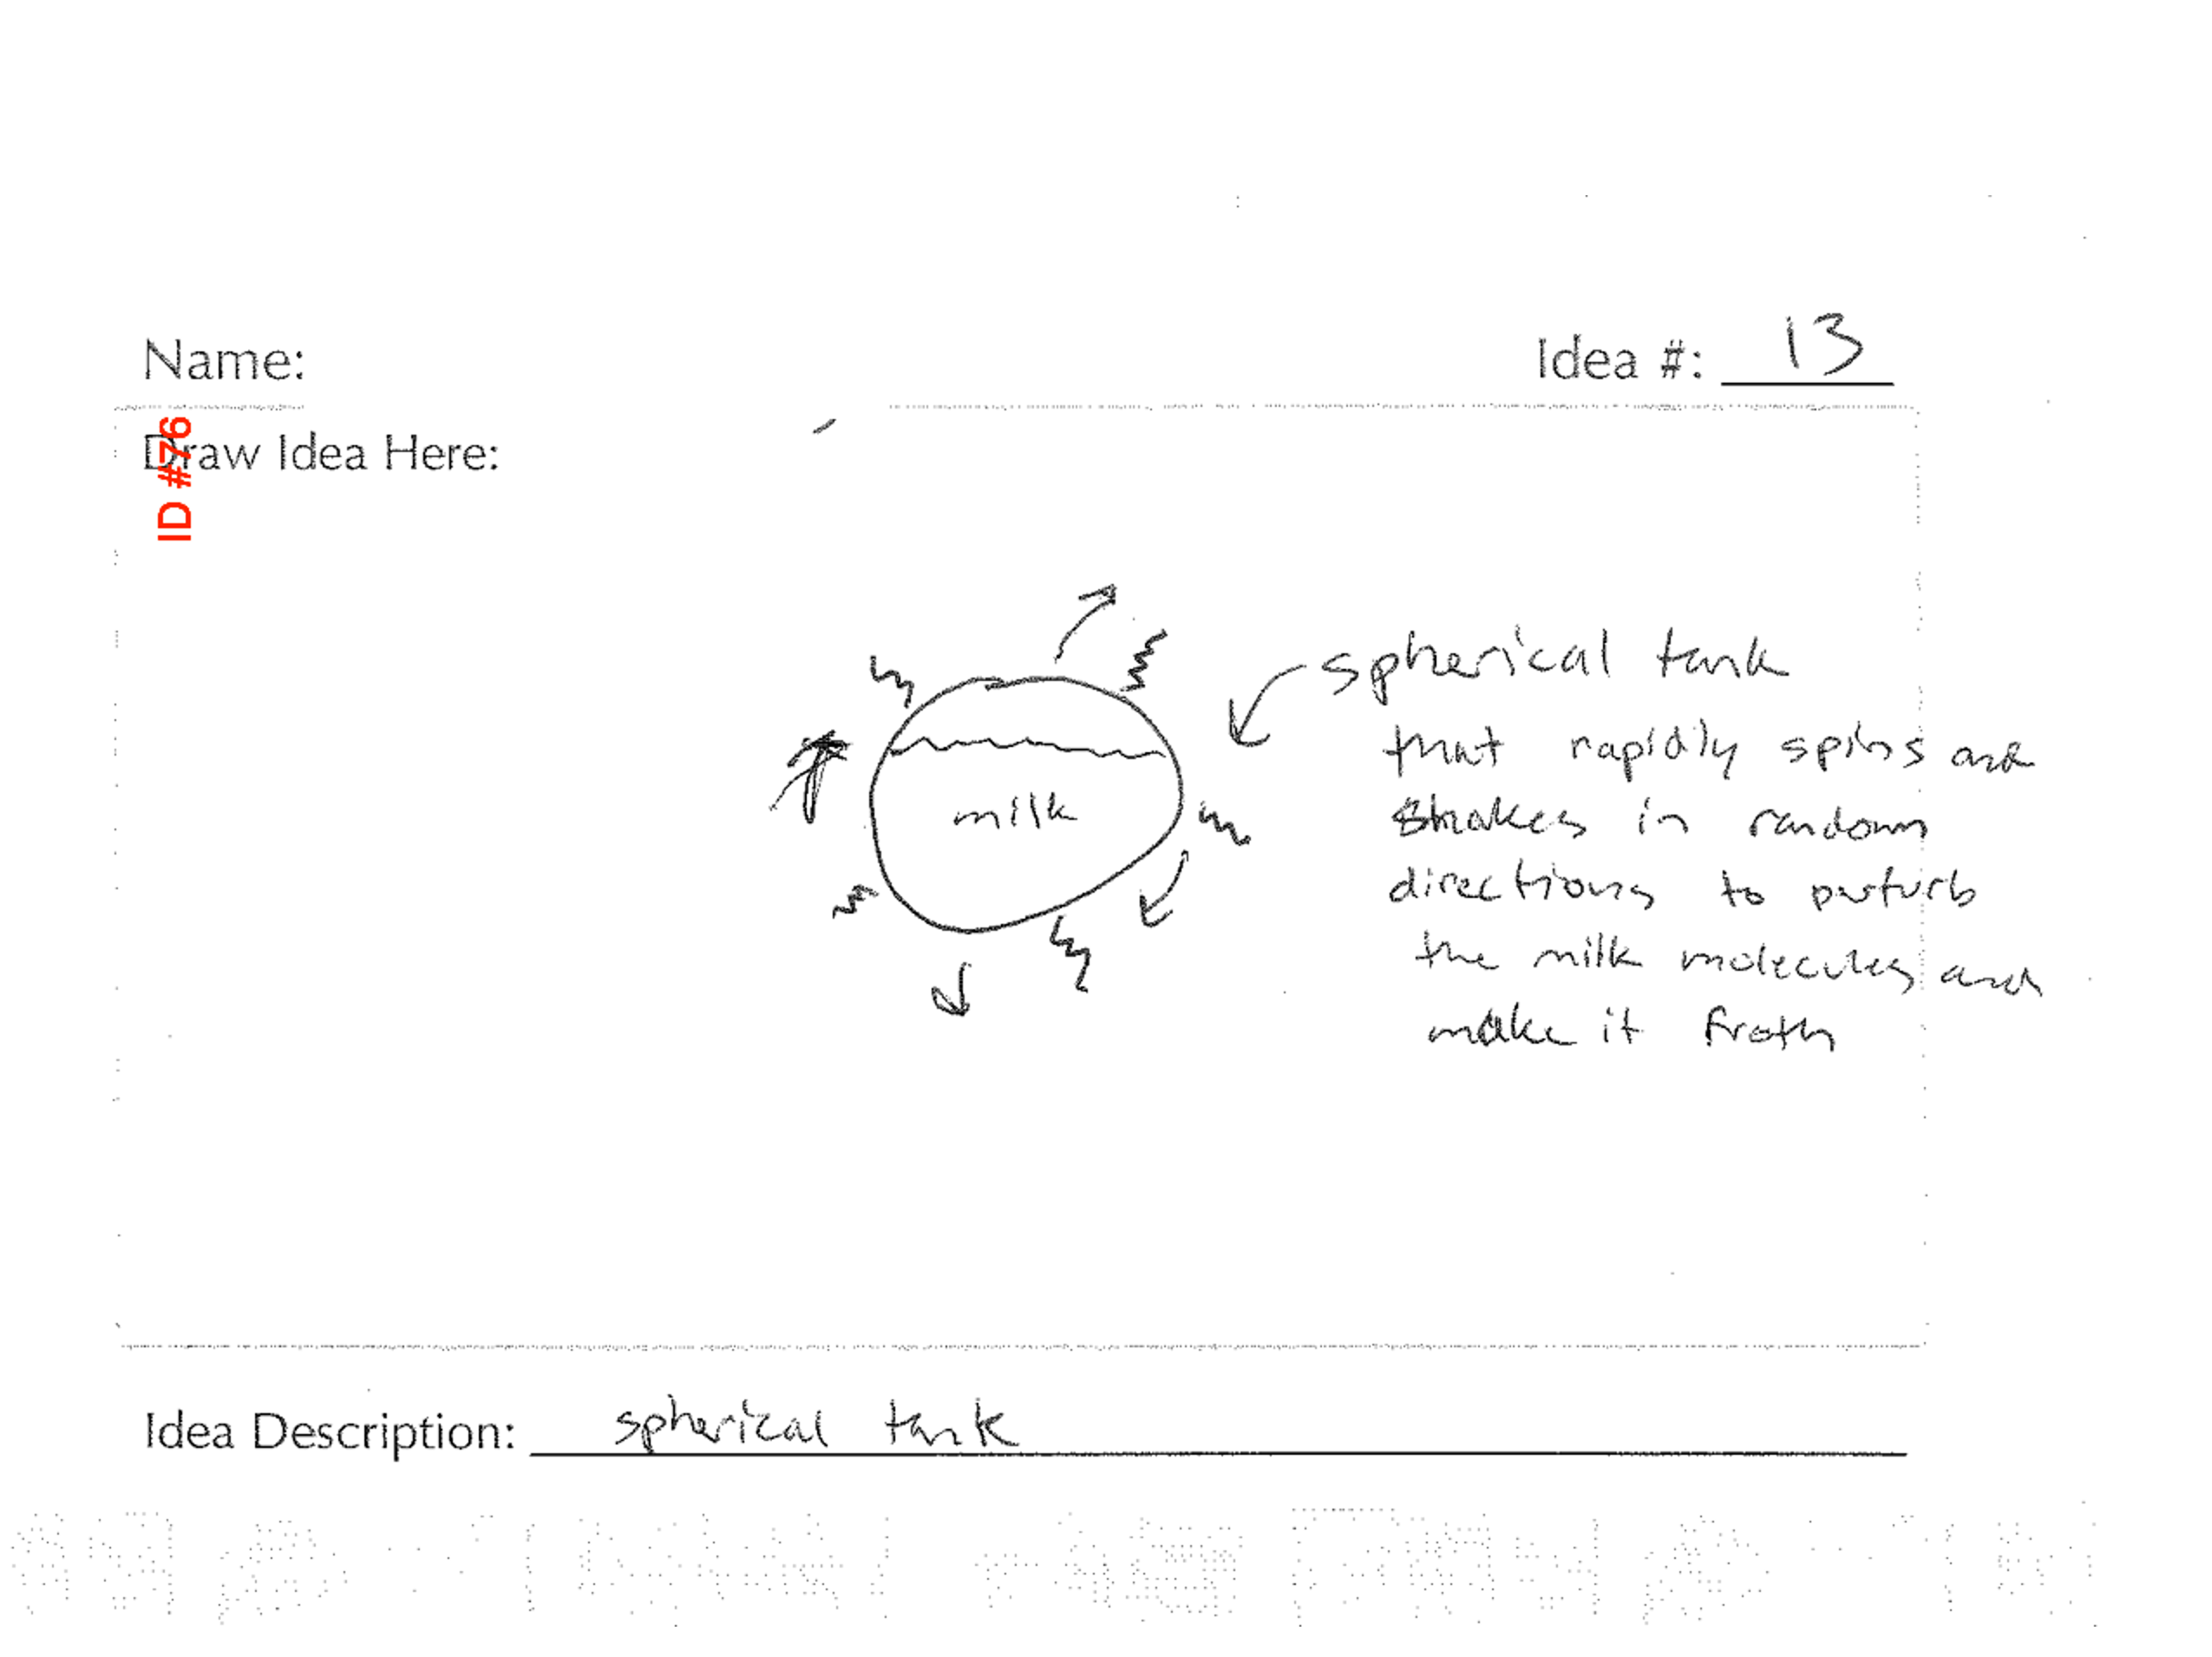 Name:
Idea #: 13
Draw Idea Here:
ID #76
spherical tank
that rapidly spins and
shakes in random
directions to perturb
the milk molecules and
make it froth
milk
Idea Description: spherical tank